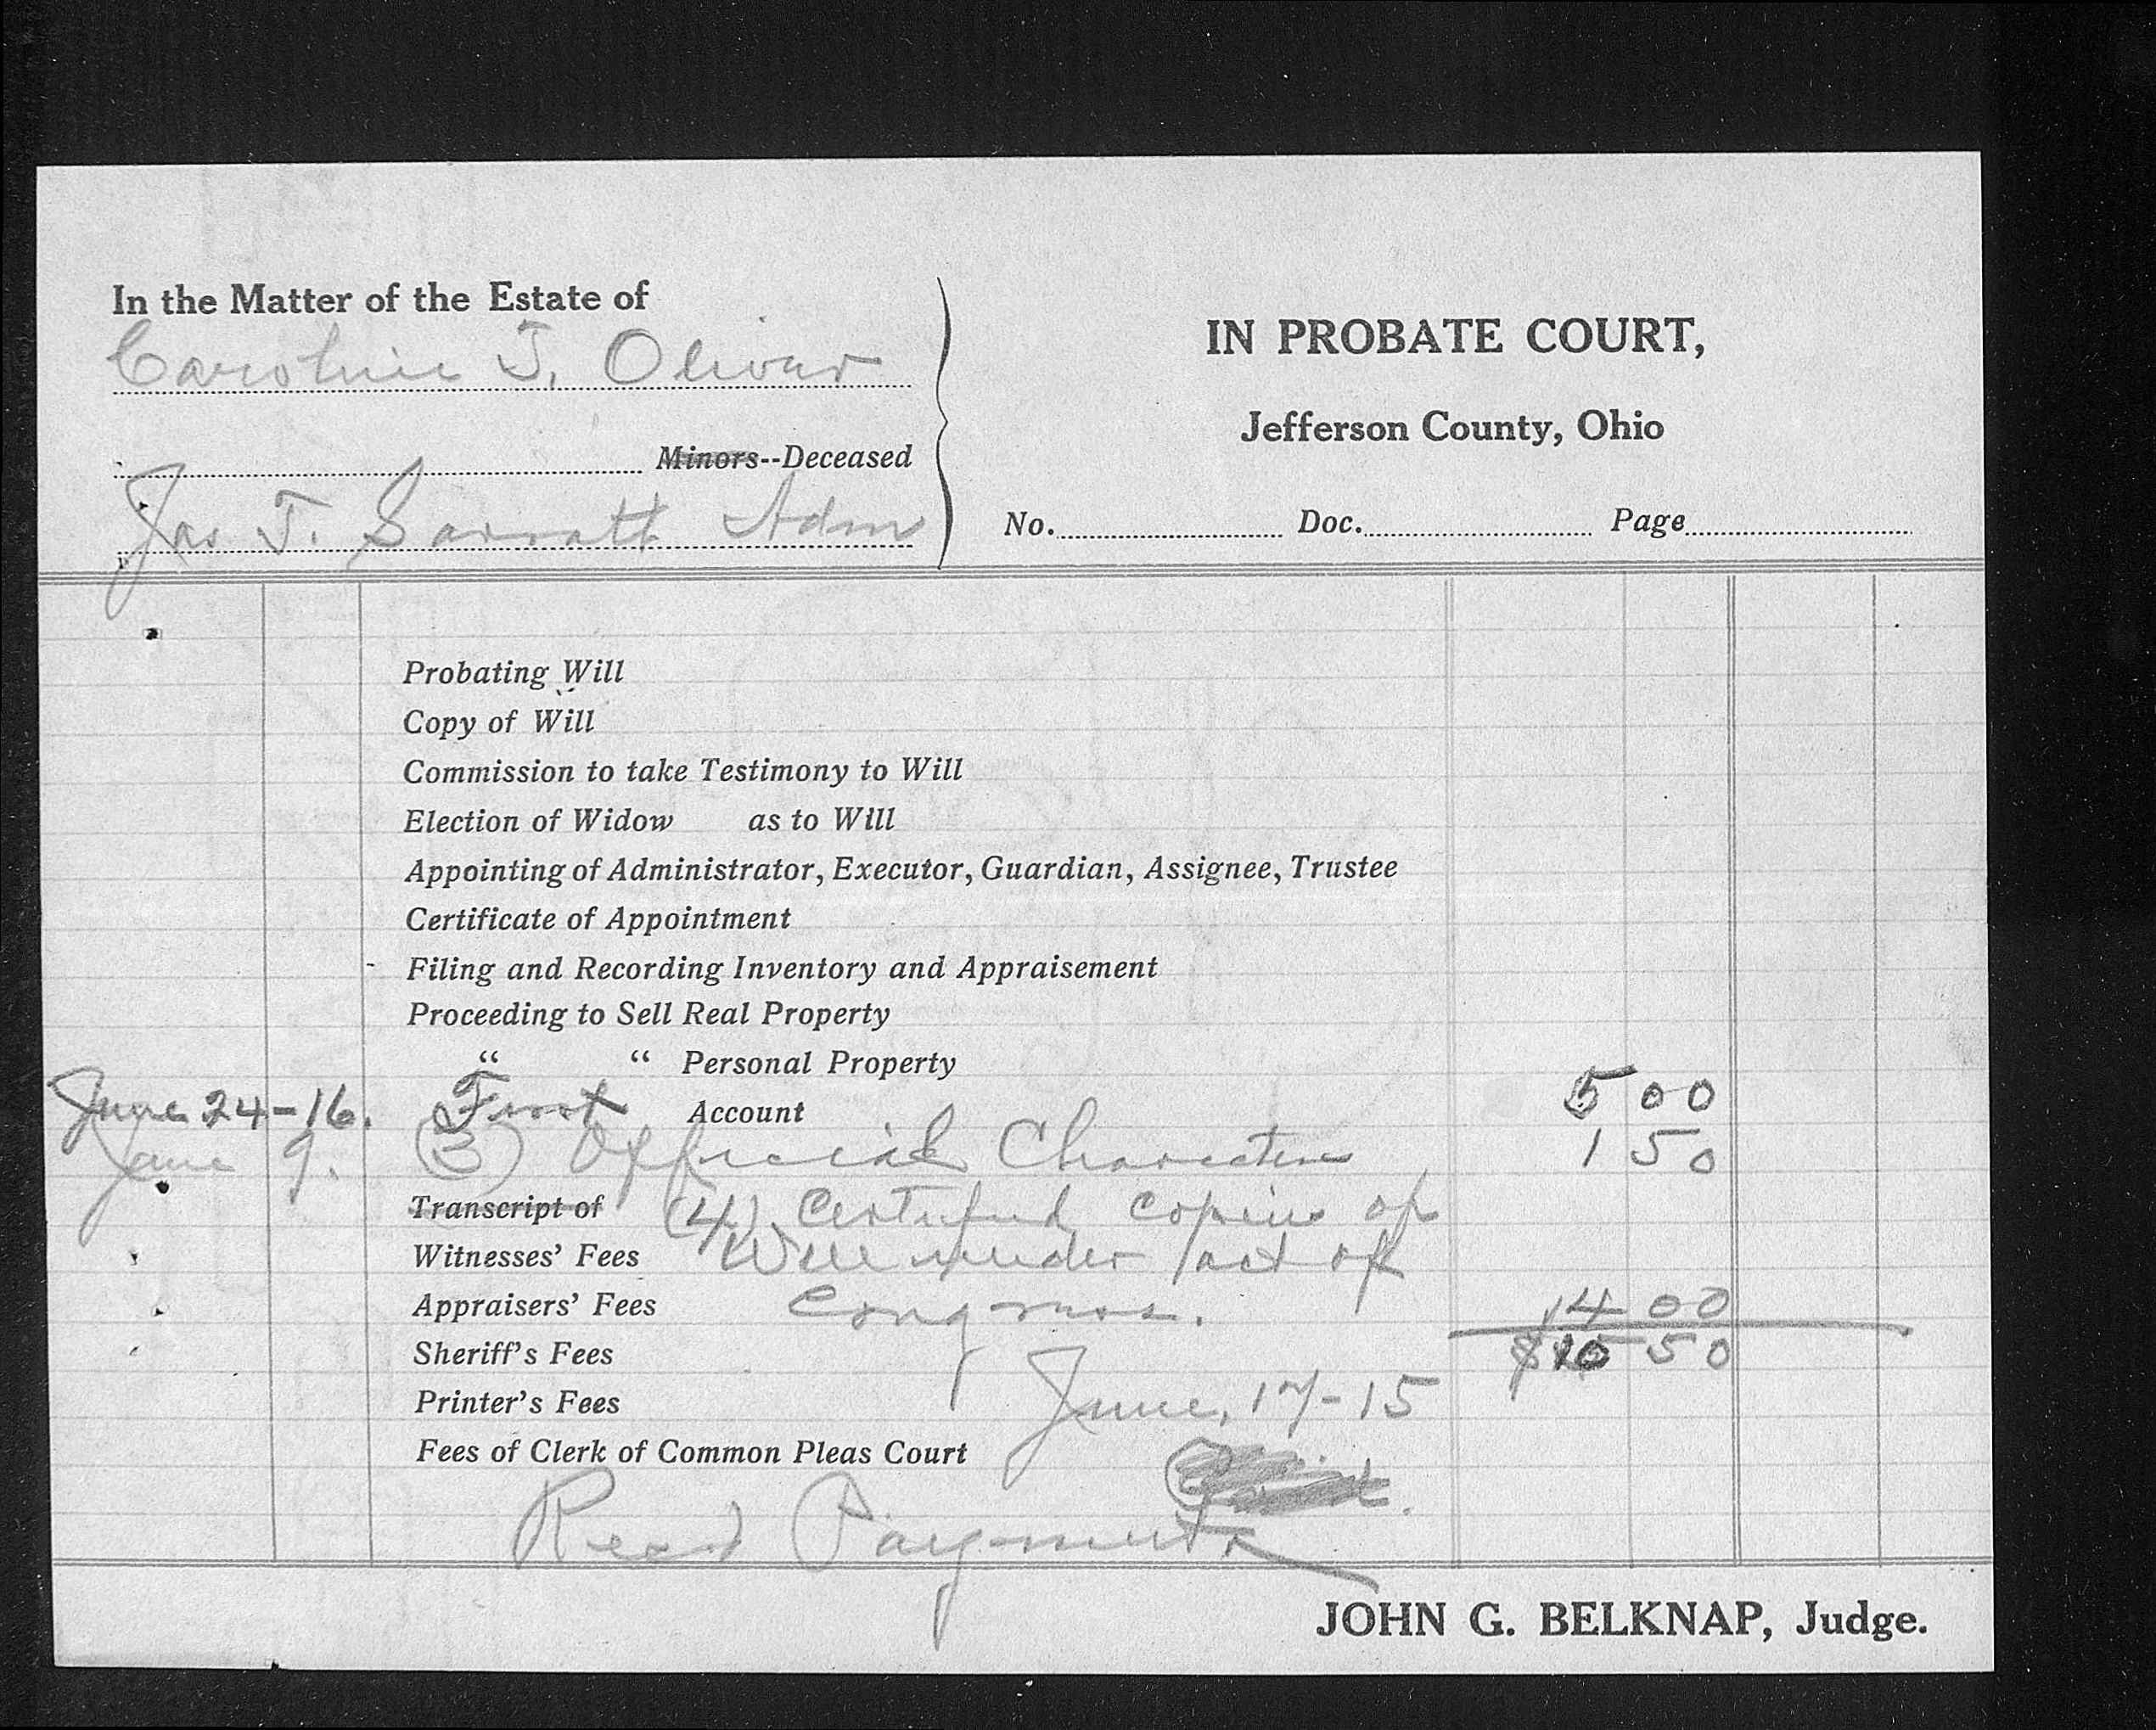 In the Matter of the Estate of
Caroline T. Oliver
Minors--Deceased
Jas T. Sarratt Adm
IN PROBATE COURT,
Jefferson County, Ohio
No. Doc. Page
Probating Will
Copy of Will
Commission to take Testimony to Will
Election of Widow as to Will
Appointing of Administrator, Executor, Guardian, Assignee, Trustee
Certificate of Appointment
Filing and Recording Inventory and Appraisement
Proceeding to Sell Real Property
“ “ Personal Property
June 24-16. First Account 5 00
June 9. (3) Official Character 1 50
Transcript of (4) Certified Copies of
Witnesses' Fees Will under act of
Appraisers' Fees Congress. 4 00
Sheriff's Fees $10 50
Printer's Fees June, 17-15
Fees of Clerk of Common Pleas Court
Recd Payment
JOHN G. BELKNAP, Judge.